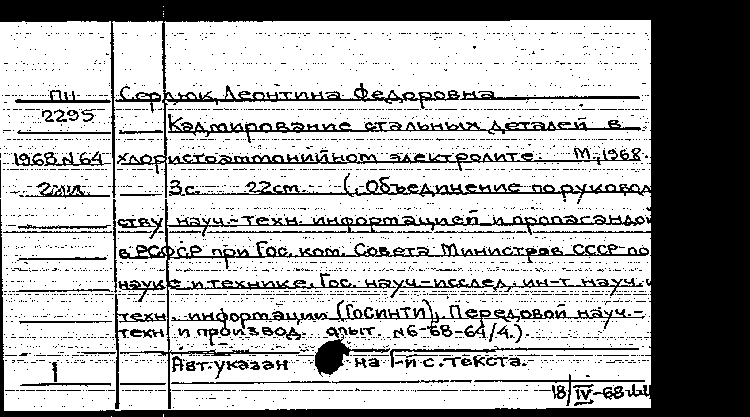 ПН Сердюк, Леонтина Федоровна
2295
Кадмирование стальных деталей в
1968 N 64 хлористоаммонийном электролите. М., 1968.
3с. 22см. (Объединение по руковод
ству науч.-техн. информацией и пропагандой
в РСФСР при Гос. ком. Совета Министров СССР по
науке и технике. Гос. науч-исслед. ин-т науч. и
техн. информации (ГОСИНТИ), Передовой науч.-
техн и производ. опыт. N6-68-64/4.)
1 Авт. указан на 1-й с. текста.
18/IV-68